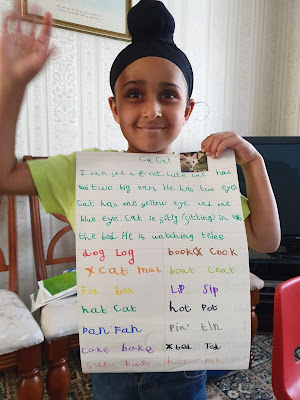 Cu Cat
I can see a cat. Cute cat has
two big ears. He has two eye
Cat has one yellow eye and one
blue eye. Cat is sitly (sitting) in
the bed. He is watching telee
dog Log
book Cook
x Cat mat
boat Coat
Fox box
Lip Sip
hat Cat
hot Pot
Pan Fan
Pin tin
cake bake
x bed Ted
sun bun